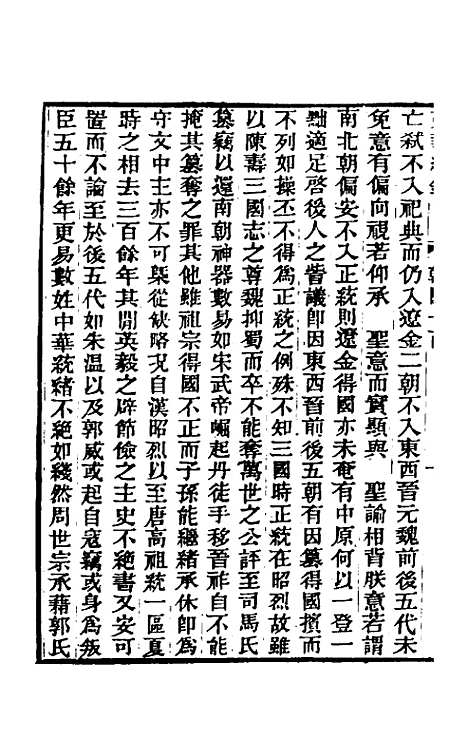 亡弑不入祀典而仍入遼金二朝不入東西晉元魏前後五代未
免意有偏向視若仰承　聖意而實顯與　聖諭相背朕意若謂
南北朝偏安不入正統則遼金得國亦未奄有中原何以一登一
黜適足啓後人之訾議卽因東西晉前後五朝有因篡得國擯而
不列如操丕不得爲正統之例殊不知三國時正統在昭烈故雖
以陳壽三國志之尊魏抑蜀而卒不能奪萬世之公評至司馬氏
篡竊以還南朝神器數易如宋武帝崛起丹徒手移晉祚自不能
掩其篡奪之罪其他雖祖宗得國不正而子孫能繼緒承休卽爲
守文中主亦不可槩從缺略况自漢昭烈以至唐高祖統一區夏
時之相去三百餘年其閒英毅之辟節儉之主史不絶書又安可
置而不論至於後五代如朱溫以及郭威或起自寇竊或身爲叛
臣五十餘年更易數姓中華統緒不絶如綫然周世宗承藉郭氏